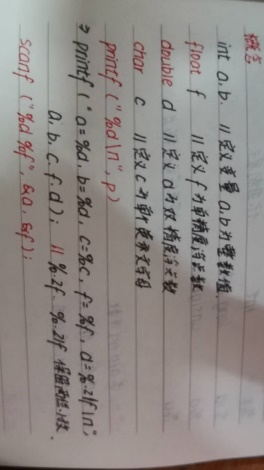 概念
int a,b. //定义变量 a,b为整数值.
float f //定义 f 为单精度浮点数
double d //定义 d 为双精度浮点数
char c //定义 c 为单字符
printf ("%d\n", p)
⇒ printf (" a=%d, b=%d, c=%c, f=%f, d=%.2lf\n",
a, b, c, f, d); // %.2f. %.2lf 保留两位小数.
scanf ("%d %f", &a, &f);